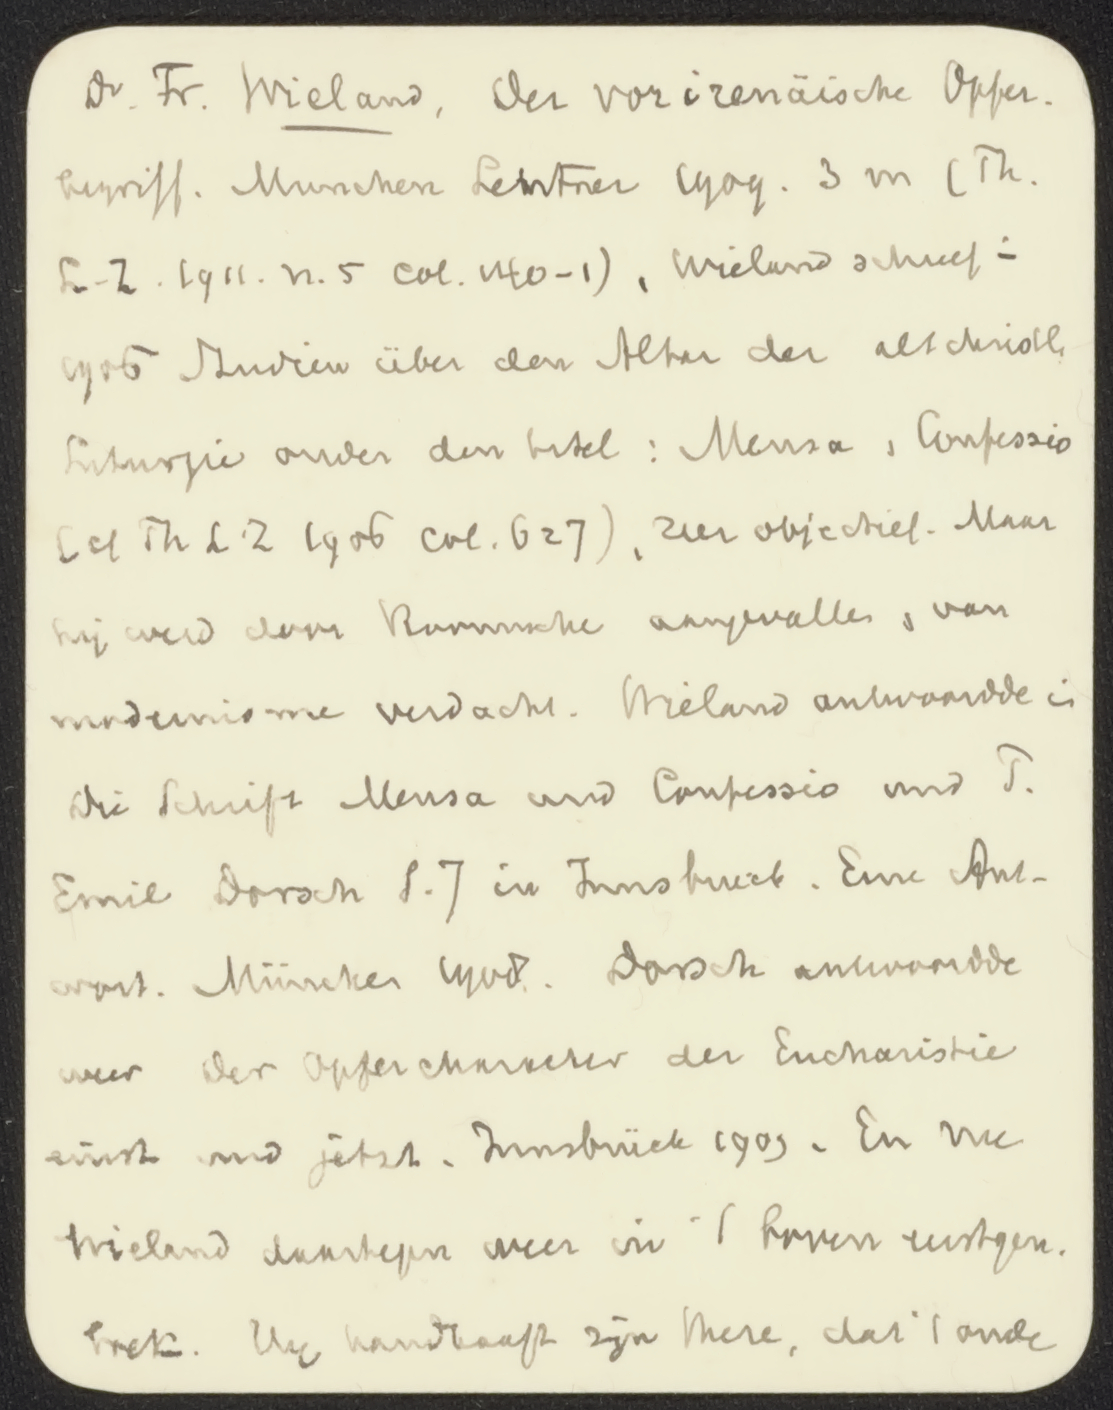 Dr. Fr. Wieland, Der vorirenäische Opfer-
begriff. München Lentner 1909. 3 m (Th.
L-Z. 1911. n. 5 col. 140-1), Wieland schreef in
1906 Studien über den Altar der altchristl.
Liturgie onder den titel: Mensa, Confessio
(cf Th L Z 1906 col. 627), zeer objectief. Maar
hij werd door Roomsche aangevallen, van
modernisme verdacht. Wieland antwoordde in
Die Schrift Mensa und Confessio und P.
Emil Dorsch S.J in Innsbruck. Eine Ant-
wort. München 1908. Dorsch antwoordde
weer Der Opfercharakter der Eucharistie
einst und jetzt. Innsbrück 1909. En nu
Wieland daartegen weer in 't boven eerstgen.
boek. Hij handhaaft zijn these, dat 't oude